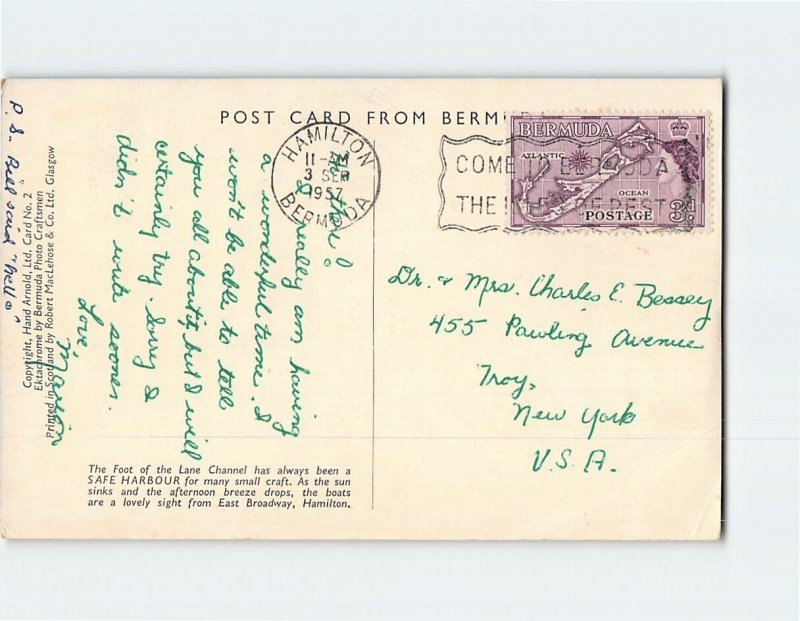 POST CARD FROM BERMUDA
HAMILTON
11-AM
3 SEP
1957
BERMUDA
COME TO BERMUDA
THE ISLES OF REST
BERMUDA
ATLANTIC
OCEAN
POSTAGE
3d
Hi there!
I really am having
a wonderful time. I
won't be able to tell
you all about it, but I will
certainly try. Sorry I
didn't write sooner.
Love,
Marion
P.S. Bill said "hello"
Copyright, Hand Arnold, Ltd. Card No. 2
Ektachrome by Bermuda Photo Craftsmen
Printed in Scotland by Robert MacLehose & Co. Ltd. Glasgow
Dr. & Mrs. Charles E. Bessey
455 Pawling Avenue
Troy,
New York
U.S.A.
The Foot of the Lane Channel has always been a
SAFE HARBOUR for many small craft. As the sun
sinks and the afternoon breeze drops, the boats
are a lovely sight from East Broadway, Hamilton.